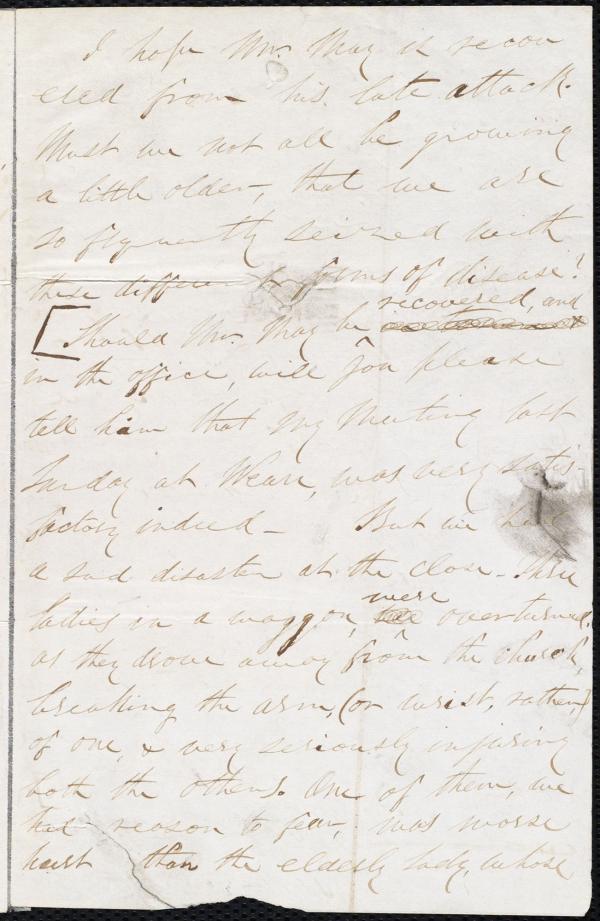 I hope Mr. May is recov
ered from his late attack.
Must we not all be growing
a little older, that we are
so frequently seized with
these different forms of disease?
[Should Mr. May be recovered, and
in the office, will you please
tell him that my meeting last
Sunday at Weare, was very satis-
factory indeed - But we had
a sad disaster at the close - Three
ladies in a waggon, were overturned,
as they drove away from the church,
breaking the arm, (or wrist, rather,)
of one, & very seriously injuring
both the others. One of them, we
had reason to fear, was worse
hurt than the elderly lady, whose